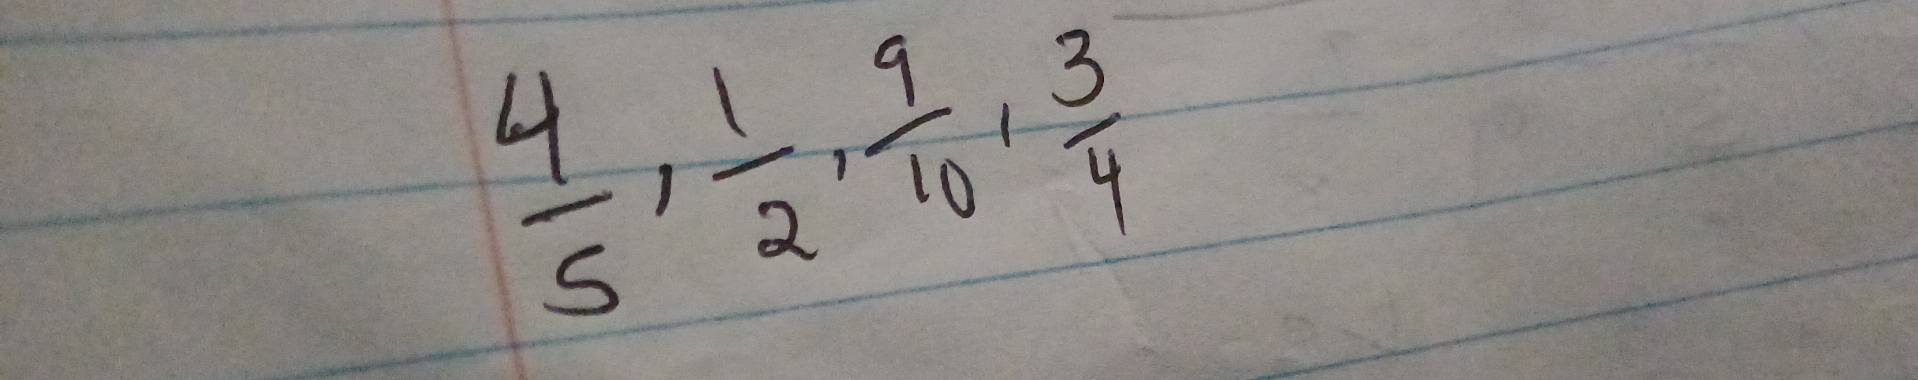 4/5, 1/2, 9/10, 3/4